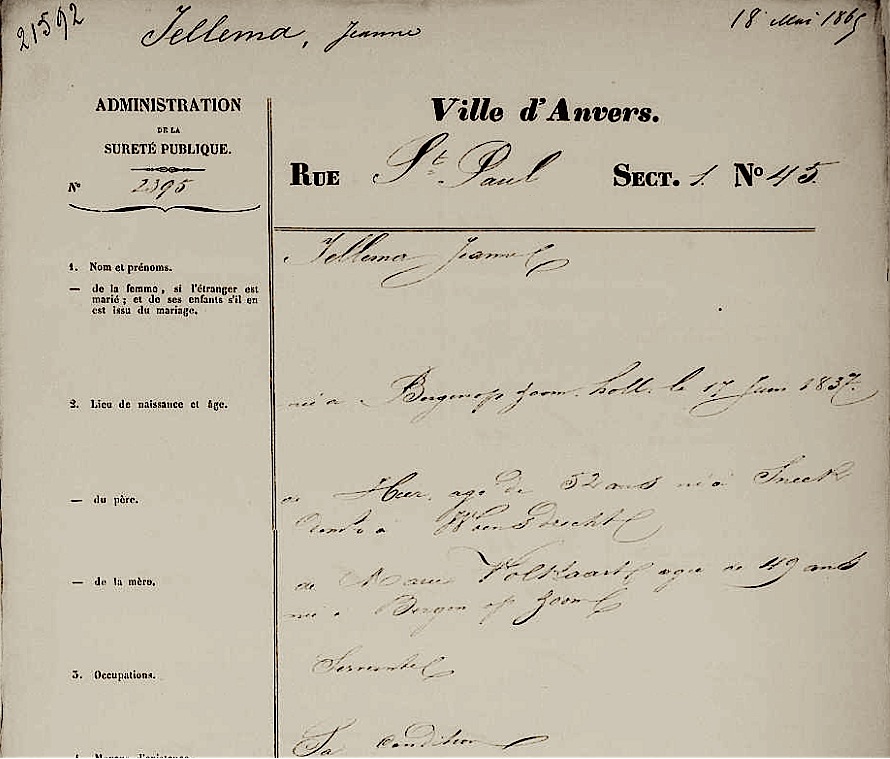 21592
Jellema, Jeanne
18 Mai 1865
ADMINISTRATION
DE LA
SURETÉ PUBLIQUE.
N° 2395
Ville d'Anvers.
RUE St. Paul SECT. 1. N° 45.
1. Nom et prénoms.
Jellema Jeanne
— de la femme, si l'étranger est
marié; et de ses enfants s'il en
est issu du mariage.
2. Lieu de naissance et âge.
née a Bergenop Zoom. holl. le 17 Juin 1837.
— du père.
de agé de 52 ans né à Sneek
Woensdrecht
— de la mère.
de Marie Volkaart agée de 49 ans
née a Bergen op Zoom
3. Occupations.
Servante
Sa condition